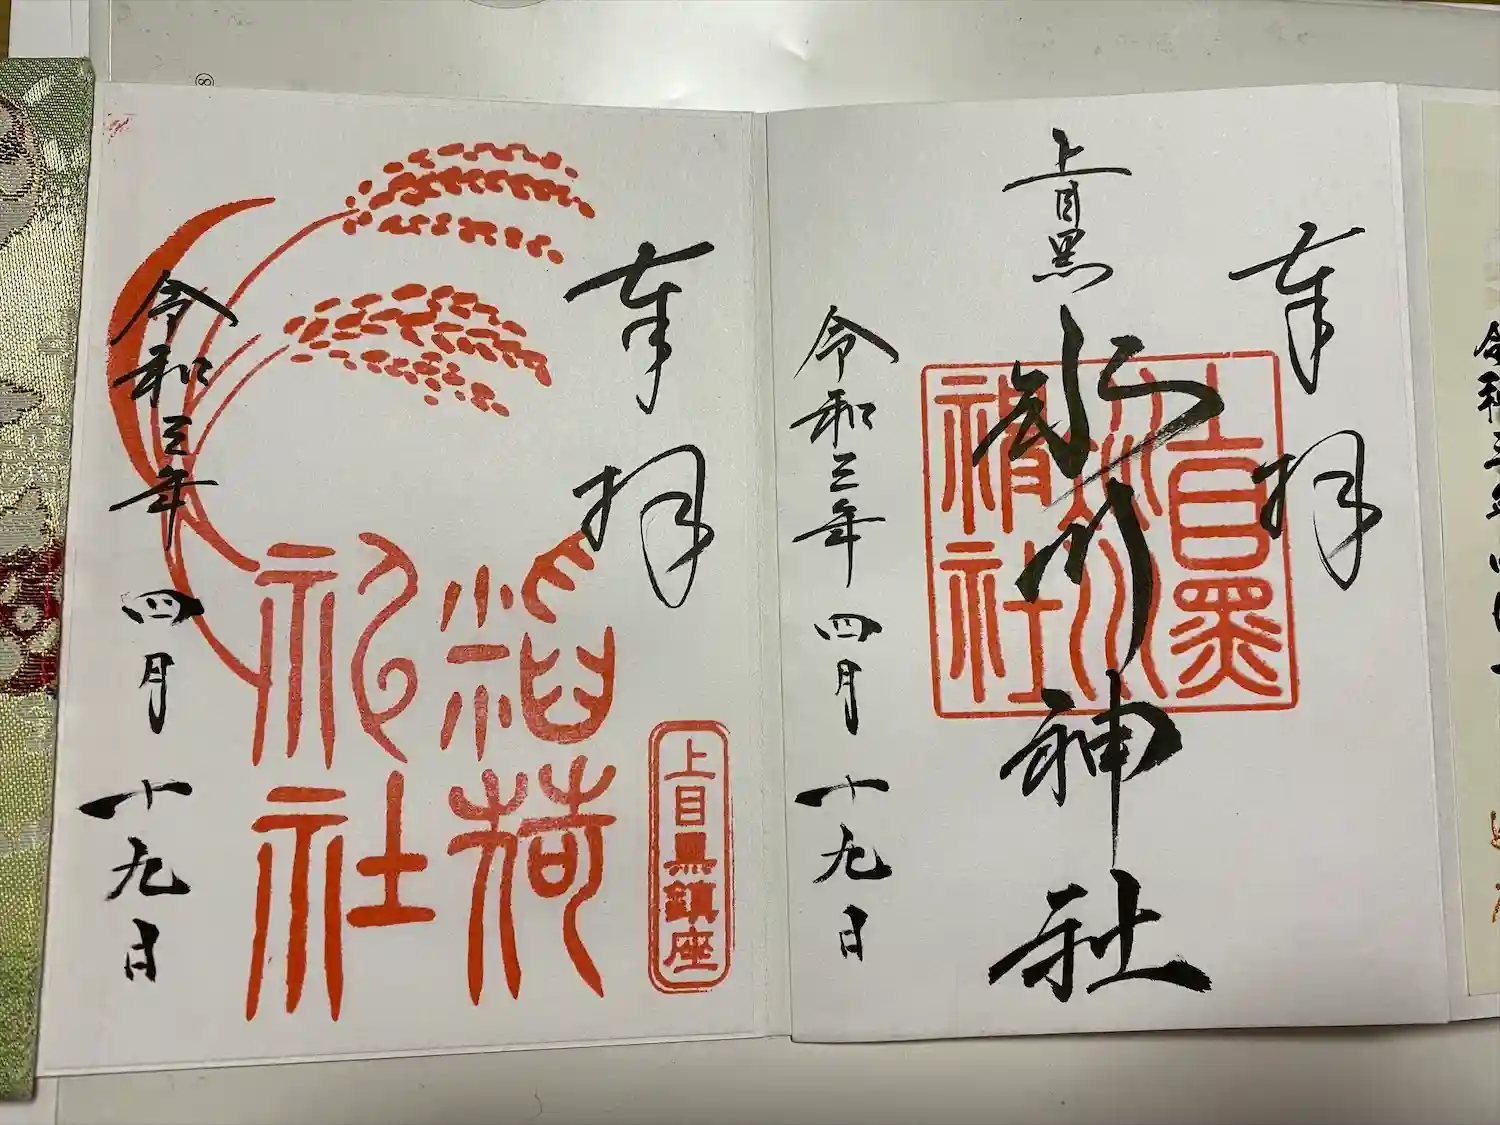 奉拝
上目黒
氷川
神社
上目黒
氷川
神社
令和三年四月十九日
奉拝
稲荷
神社
上目黒鎮座
令和三年四月十九日
令和三年四月